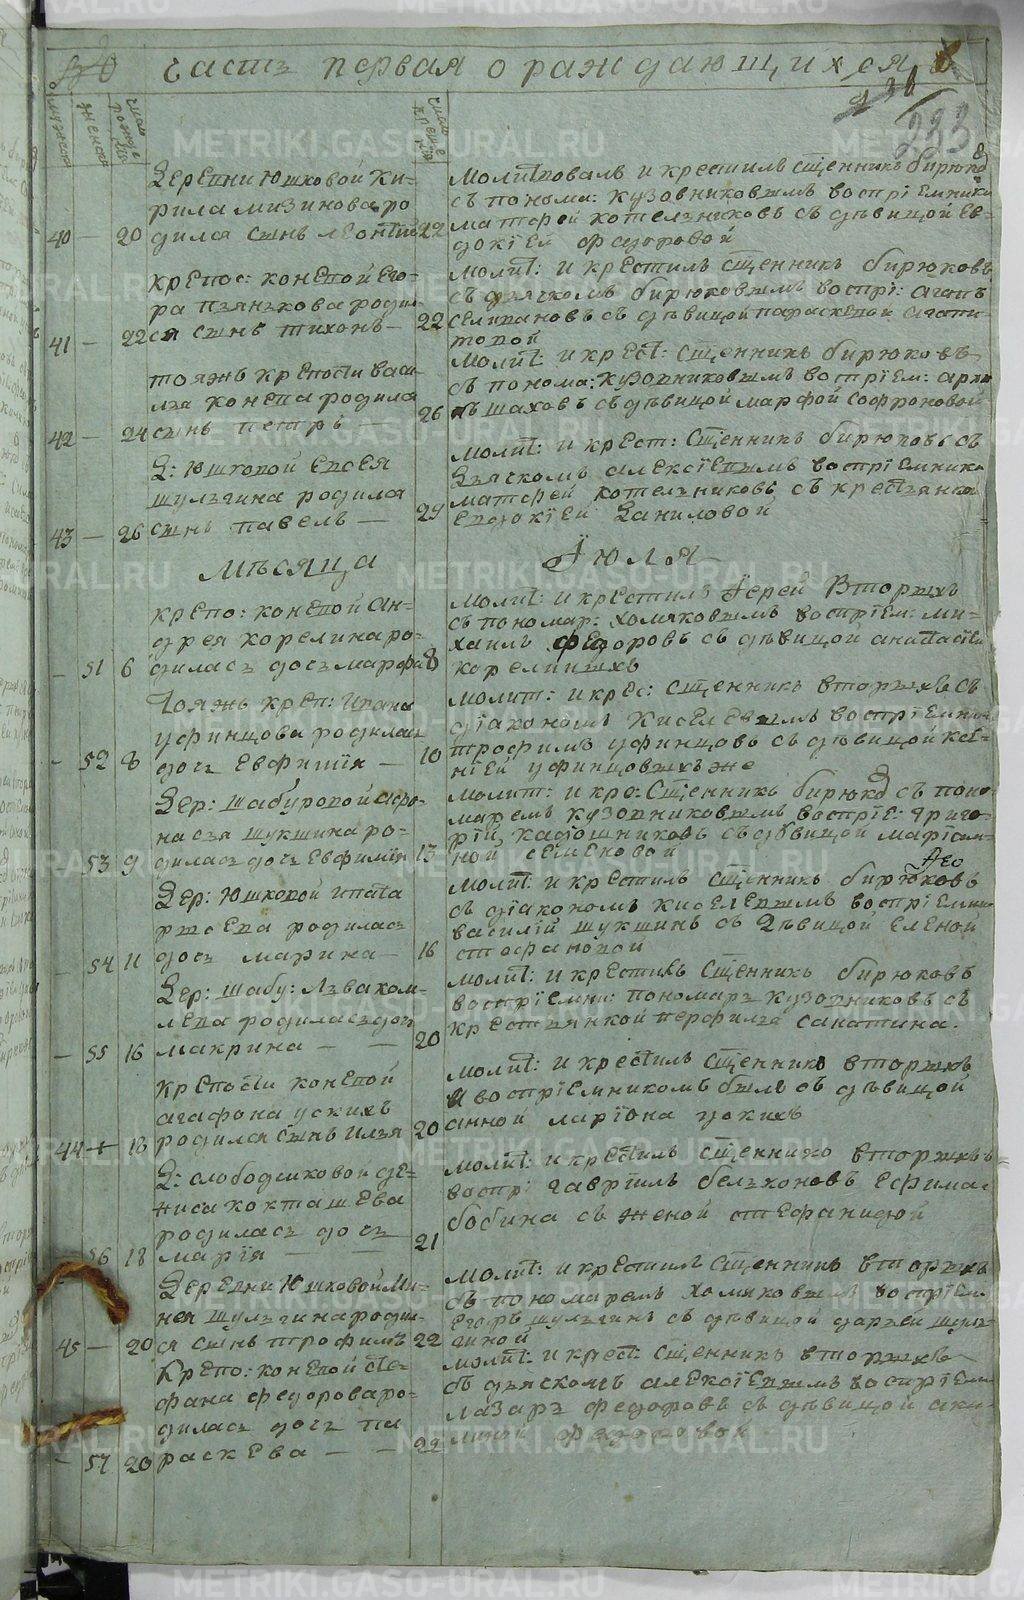 часть первая о раждающихся
мужеска
женска
число рождения
число крещения
Деревни Юшковой Ки-
рила мизинова ро
40 — 20 дился сынъ леонтий 22
молитвовалъ и крестилъ священникъ бирюковъ
съ поно​ма: кузовниковымъ воспрiемник
матфей котельниковъ съ девицой ев-
докiей федоровой
крепос: коневой его-
ра пьянкова роди-
41 — 22 ся сынъ тихонъ — 22
молит: и крестилъ священникъ бирюковъ
съ дьячкомъ бирюковымъ воспрi: агапъ
селивановъ съ девицой параскевой агапи-
товой
тояжъ крепости васи-
лья конева родился
42 — 24 сынъ петръ — 26
молит: и крест: священникъ бирюковъ
съ понома: кузовниковымъ воспрiем: архи
пъ шаховъ съ девицой марфой софроновой
Д: Юшковой Евсея
шульгина родился
43 — 26 сынъ павелъ — 29
молит: и крест: священникъ бирюковъ съ
дьячкомъ алексiевымъ воспрiемник
матфей котельниковъ съ крестьянкой
евдокiей Даниловой
мѣсяца Iюля
крепо: коневой ан-
дрея корелина ро-
— 51 6 дилась дочь марфа 8
молит: и крестилъ Iерей Вторыхъ
съ пономар: хомяковымъ воспрiем: ми-
хаилъ федоровъ съ девицой анастасiей
корелиныхъ
Тояжъ креп: Ивана
уфинцова родилась
— 52 8 дочь Евфимiя — 10
молит: и крес: священникъ вторыхъ съ
дiакономъ Киселевымъ воспрiемник
трофимъ уфинцовъ съ девицой ксе-
нiей уфинцовыхъ же
Дер: шабуровой афо-
насья шукшина ро-
— 53 9 дилась дочь Евфимiя 13
молит: и кре: Священникъ бирюковъ съ поно
маремъ кузовниковымъ воспрiе: григо-
рiй каюшниковъ съ девицой марiам-
ной семеновой
Дер: Юшковой ипата
ртсева родилась
— 54 11 дочь марина — 16
молит: и крестилъ священникъ бирюковъ
съ дiакономъ киселевымъ воспрiемник
василiй шукшинъ съ Девицой еленой
стефановой
Дер: шабу: Льва ком-
лева родилась дочь
— 55 16 макрина — — 20
молит: и крестилъ священникъ бирюковъ
воспрiемни: пономарь кузовниковъ съ
крестьянкой перфилья сапатина.
крепости коневой
агафона ускихъ
44 — 18 родился сынъ илья 20
молит: и крестилъ священникъ вторыхъ
и воспрiемникомъ былъ съ девицой
анной ларiона ускихъ
Д: слободчиковой де-
ниса кокташева
родилась дочь
56 18 марiя — — 21
молит: и крестилъ священникъ вторыхъ
воспрi гаврiилъ бельконовъ Ефима
бобина съ женой стефанидой
Деревни Юшковой Ми-
нея шульгина роди-
45 — 20 ся сынъ трофимъ 22
молит: и крестилъ священникъ вторыхъ
съ пономаремъ хомяковымъ воспрiем
егоръ шульгинъ съ девицой дарьей шуль-
гиной
Крепо: коневой сте-
фана федорова ро-
дилась дочь па
— 57 20 раскева — — 22
молит: и крест: священникъ вторыхъ
съ дьячкомъ алексiевымъ воспрiем
лазарь федоровъ съ девицой аку-
линой федоровой